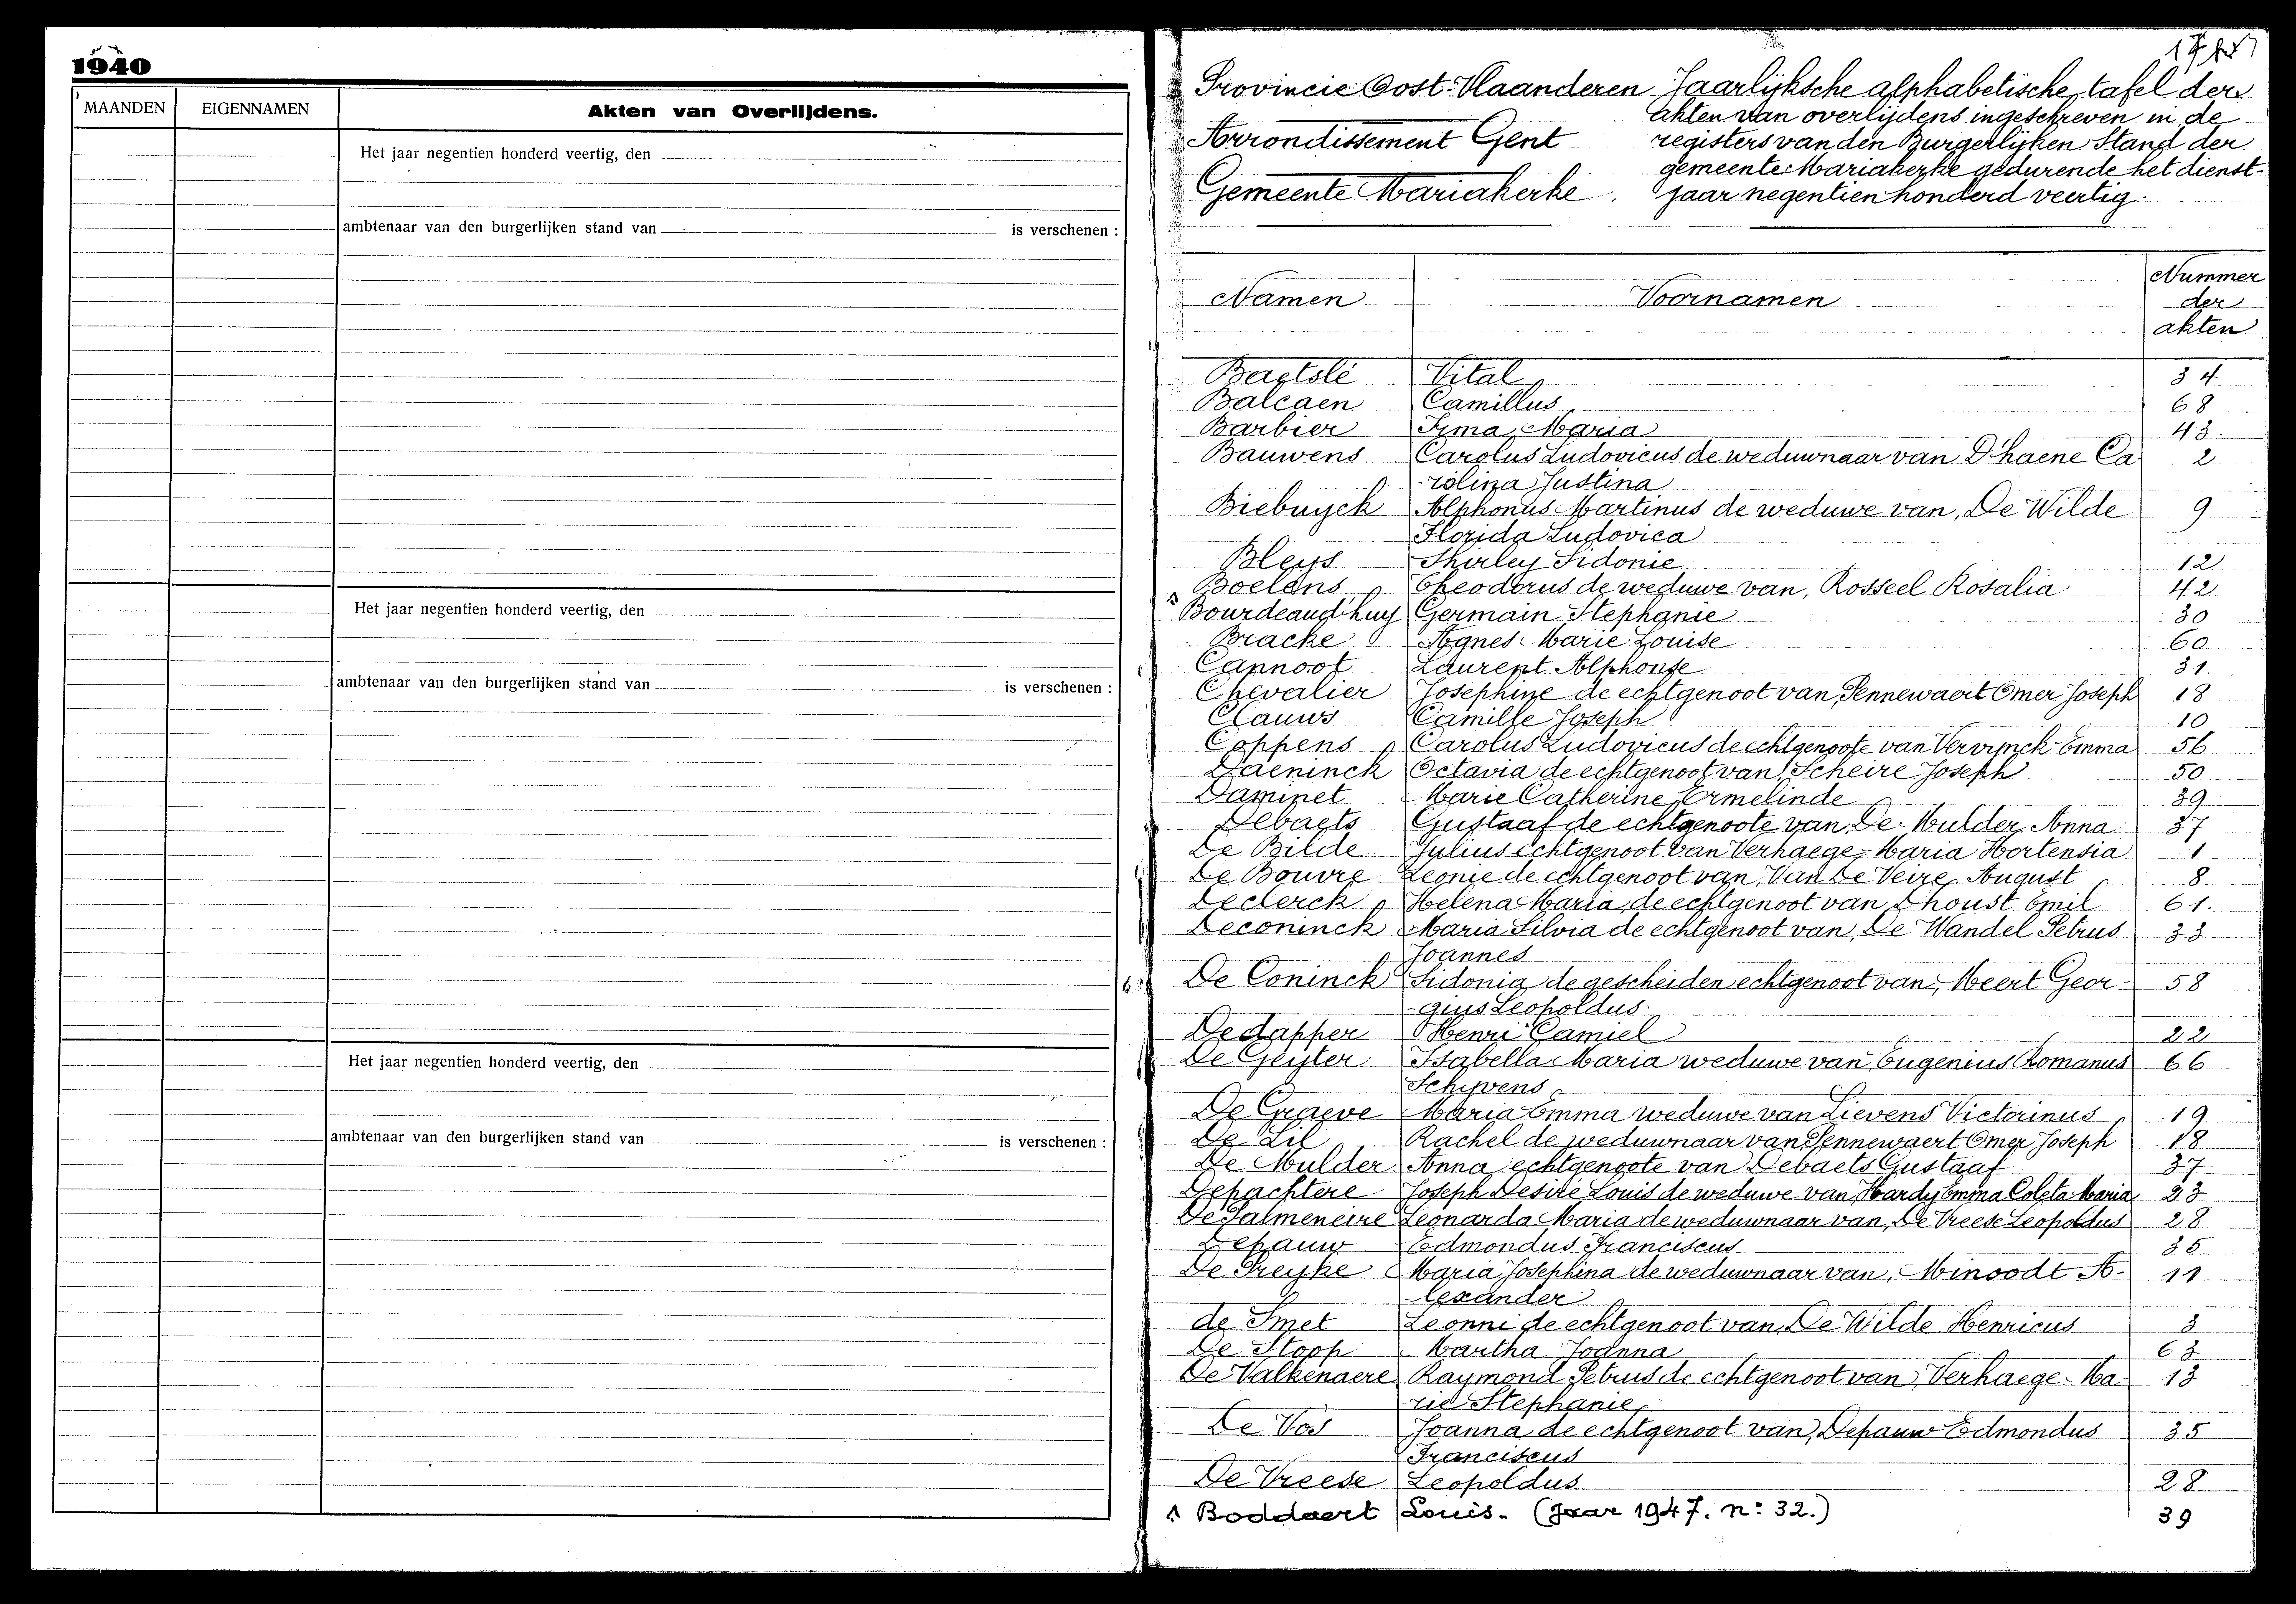 1940
MAANDEN EIGENNAMEN Akten van Overlijdens.
Het jaar negentien honderd veertig, den
ambtenaar van den burgerlijken stand van is verschenen :
Het jaar negentien honderd veertig, den
ambtenaar van den burgerlijken stand van is verschenen :
Het jaar negentien honderd veertig, den
ambtenaar van den burgerlijken stand van is verschenen :
Provincie Oost-Vlaanderen
Arrondissement Gent
Gemeente Mariakerke.
Jaarlijksche alphabetische tafel der
akten van overlijdens ingeschreven in de
registers van den Burgerlijken Stand der
gemeente Mariakerke gedurende het dienst-
jaar negentien honderd veertig.
Namen Voornamen Nummer
der
akten
Baetslé Vital 34
Balcaen Camillus 68
Barbier Irma Maria 43
Bauwens Carolus Ludovicus de weduwnaar van D'haene Ca 2
-rolina Justina
Biebuyck Alphonus Martinus de weduwe van, De Wilde 9
Florida Ludovica
Bleys Shirley Sidonie 12
Boelens Theodorus de weduwe van, Rosseel Rosalia 42
Bourdeaud'huy Germain Stephanie 30
Bracke Agnes Marie Louise 60
Cannoot Laurent Alphonse 31
Chevalier Josephine de echtgenoot van, Pennewaert Omer Joseph 18
Clauws Camille Joseph 10
Coppens Carolus Ludovicus de echtgenoote van Vervynck Emma 56
Daeninck Octavia de echtgenoot van, Scheire Joseph 50
Daminet Marie Catherine Ermelinde 39
Debaets Gustaaf de echtgenoote van, De Mulder Anna 37
De Bilde Julius echtgenoot van Verhaege, Maria Hortensia 1
De Bouvre Leonie de echtgenoot van, Van De Veire August 8
Declerck Helena Maria, de echtgenoot van D'houst Emil 61.
Deconinck Maria Silvia de echtgenoot van, De Wandel Petrus 33
Joannes
De Coninck Sidonia de gescheiden echtgenoot van, Meert Geor- 58
-gius Leopoldus.
Dedapper Henri Camiel 22
De Geyter Isabella Maria weduwe van, Eugenius Romanus 66
Schyvens
De Graeve Maria Emma weduwe van Lievens Victorinus 19
De Lil Rachel de weduwnaar van, Pennewaert Omer Joseph 18
De Mulder Anna echtgenoote van Debaets Gustaaf 37
Depachtere Joseph Desiré Louis de weduwe van, Hardy Emma Coleta Maria 23
De Palmeneire Leonarda Maria de weduwnaar van, De Vreese Leopoldus 28
Depauw Edmondus Franciscus 35
De Preyke Maria Josephina de weduwnaar van, Minoodt A- 11
-lexander
de Smet Leonni de echtgenoot van, De Wilde Henricus 3
De Stoop Martha Joanna 63
De Valkenaere Raymond Petrus de echtgenoot van, Verhaege Ma- 13
rie Stephanie
De Vos Joanna de echtgenoot van, Depauw Edmondus 35
Franciscus
De Vreese Leopoldus 28
Boddaert Louis. (Jaar 1947. n: 32.) 39